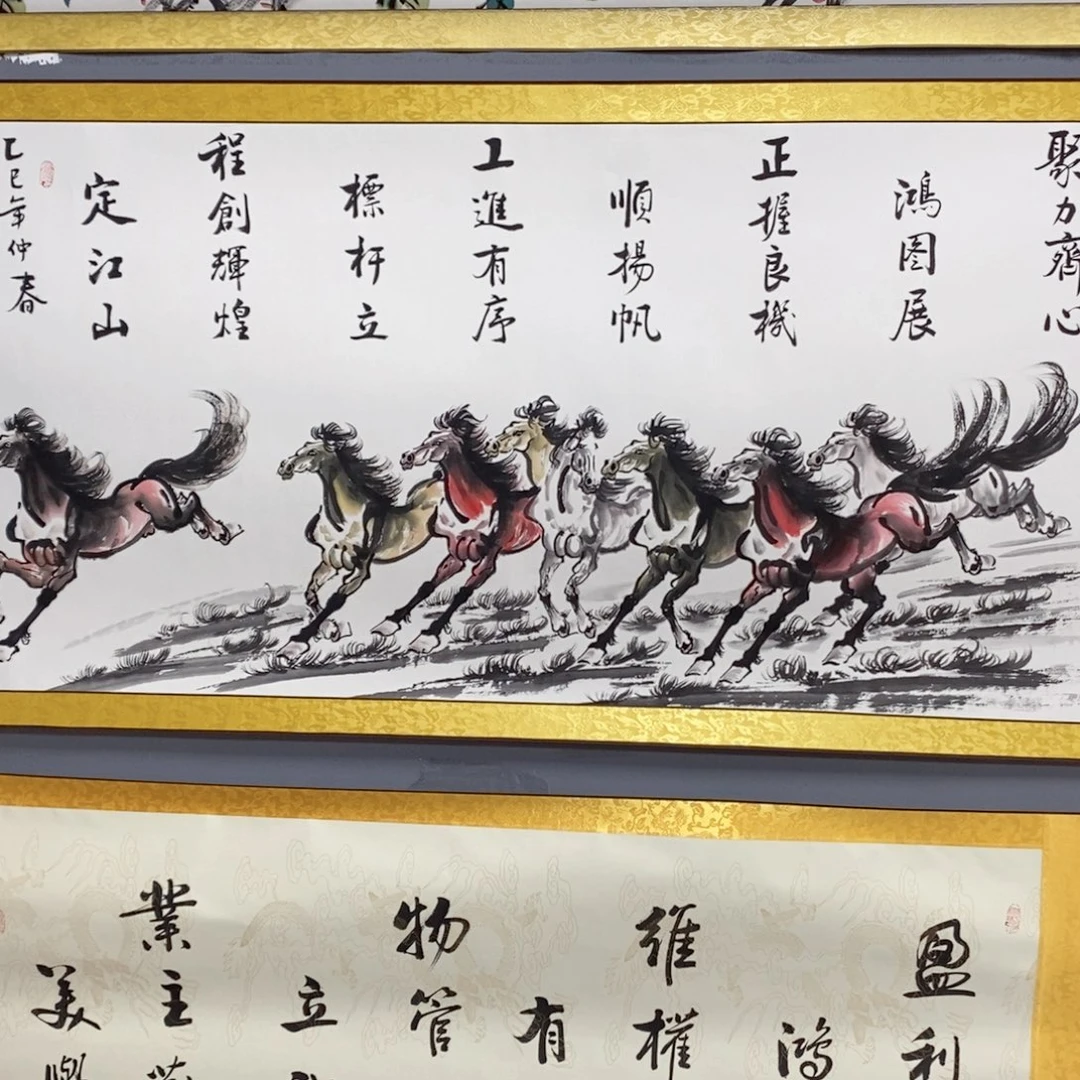 聚力齊心
鴻图展
正握良機
順揚帆
工進有序
標杆立
程創輝煌
定江山
乙巳年仲春
盈利
鴻
維權
有
物管
立
業主
美